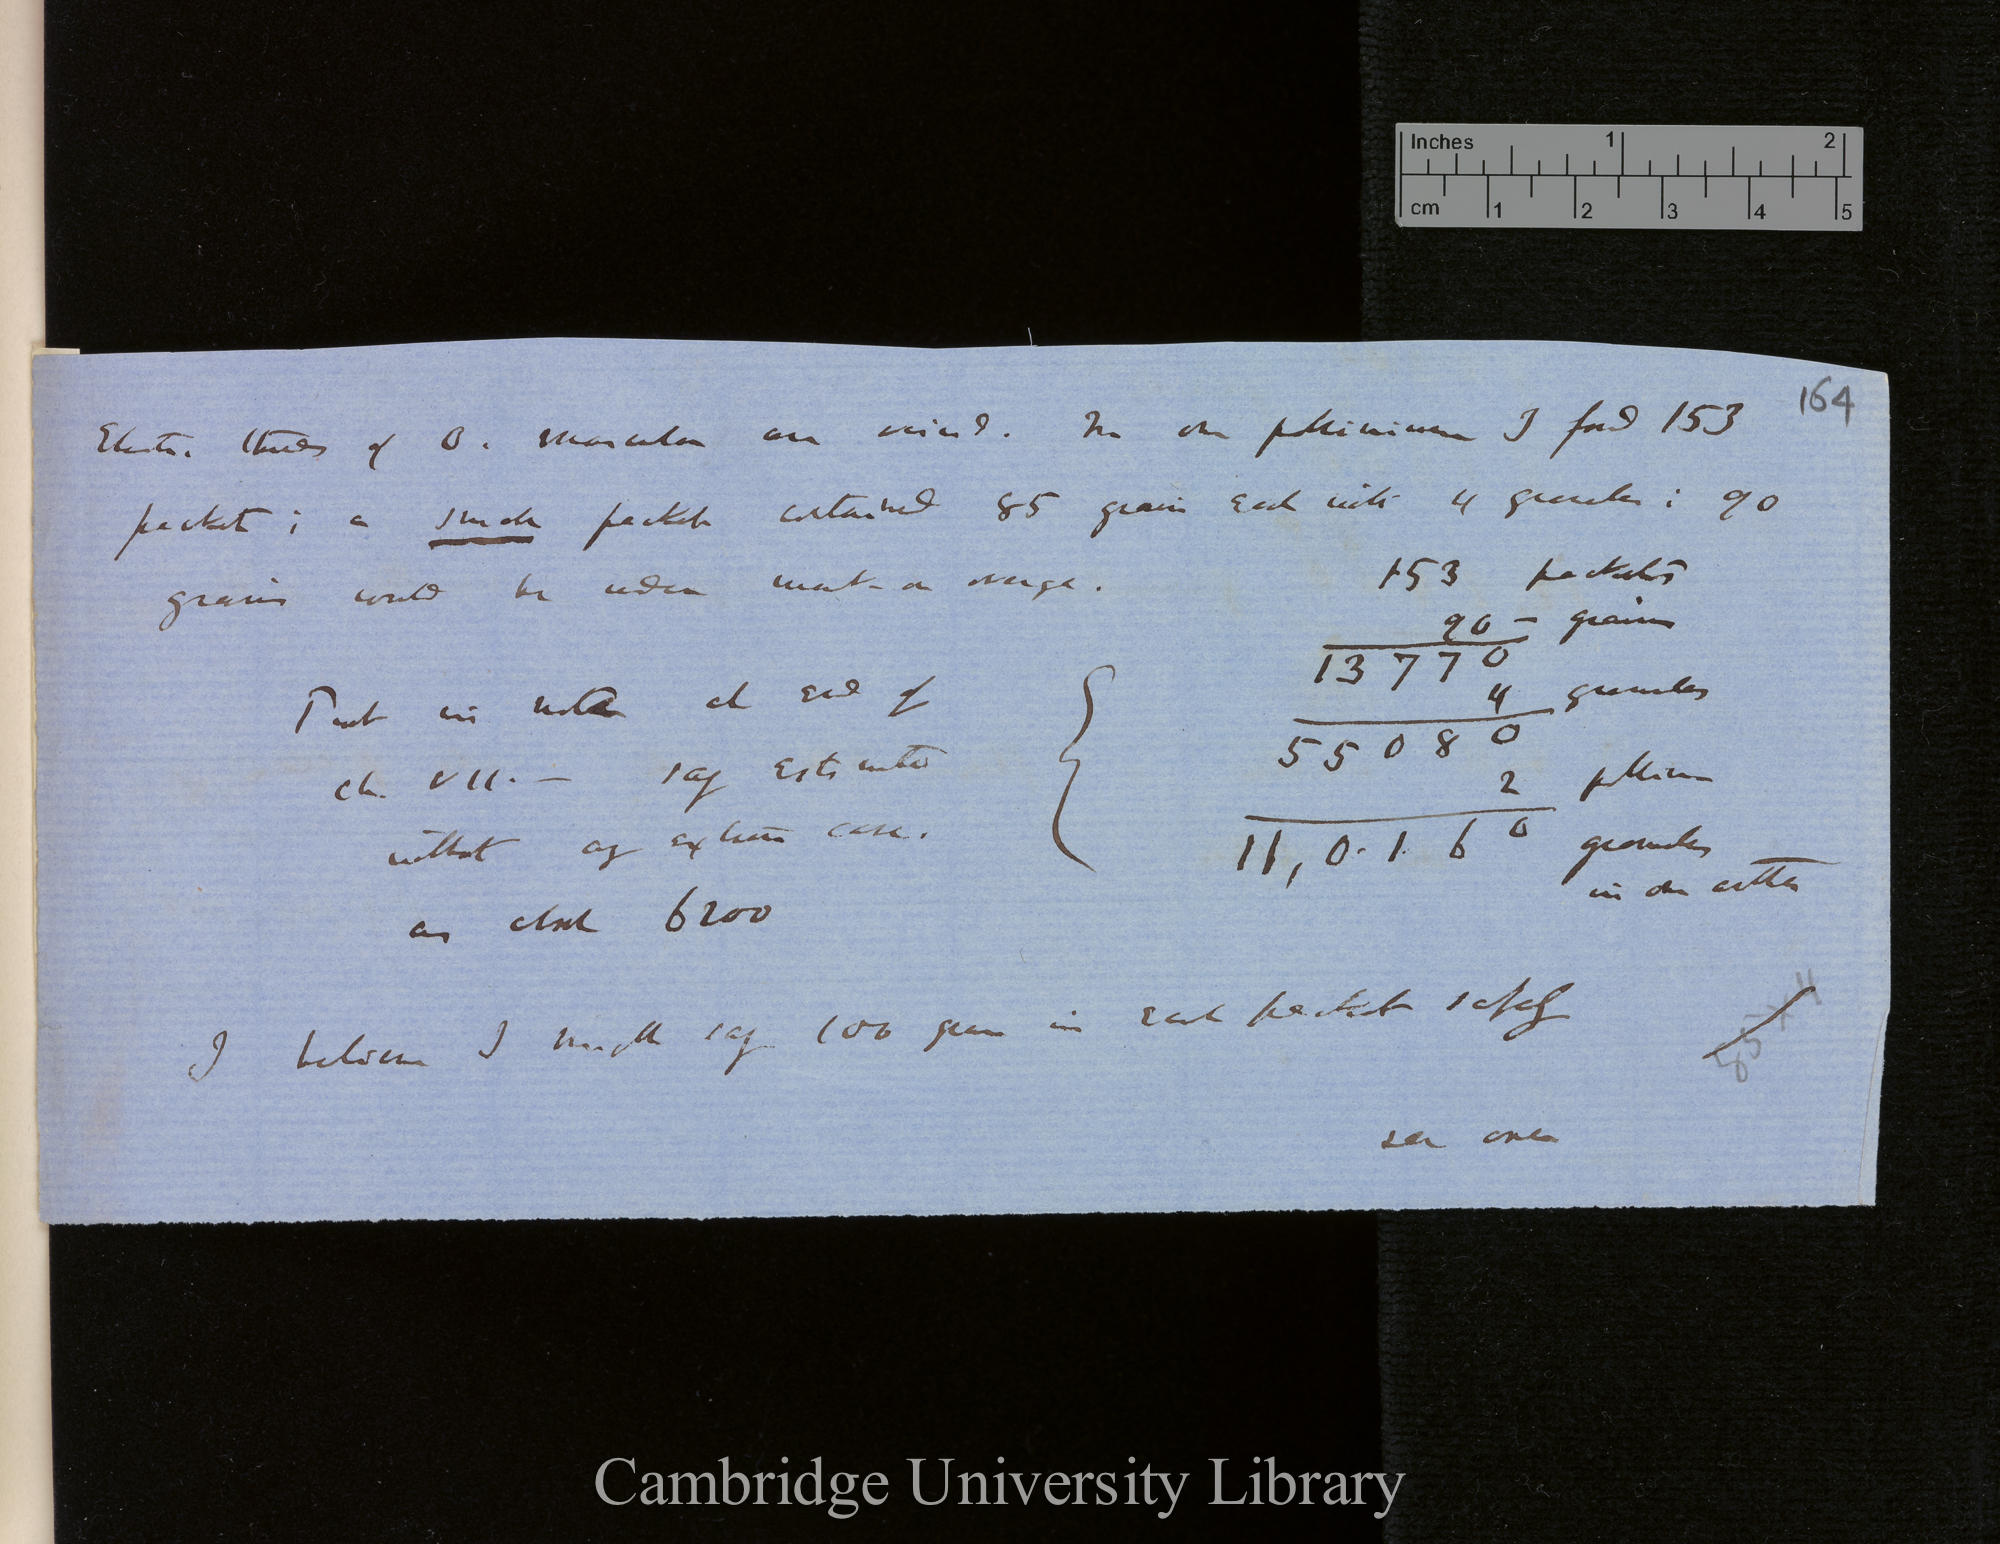 Inches 1 2
cm 1 2 3 4 5
164
Elastic threads of O. mascula are united. In one pollinium I found 153
packets; a single packet contained 85 grains each with 4 granules; 90
grains would be under mark on average.
153 packets
90 – grains
13770
4 granules
55080
2 pollinia
11,0.1.60 granules
in one anther
Put in note at end of
Ch. VII. — say estimate
without any extreme case.
as about 6200
I believe I might say 100 grains in each packet safely
85 × 4
see over
Cambridge University Library